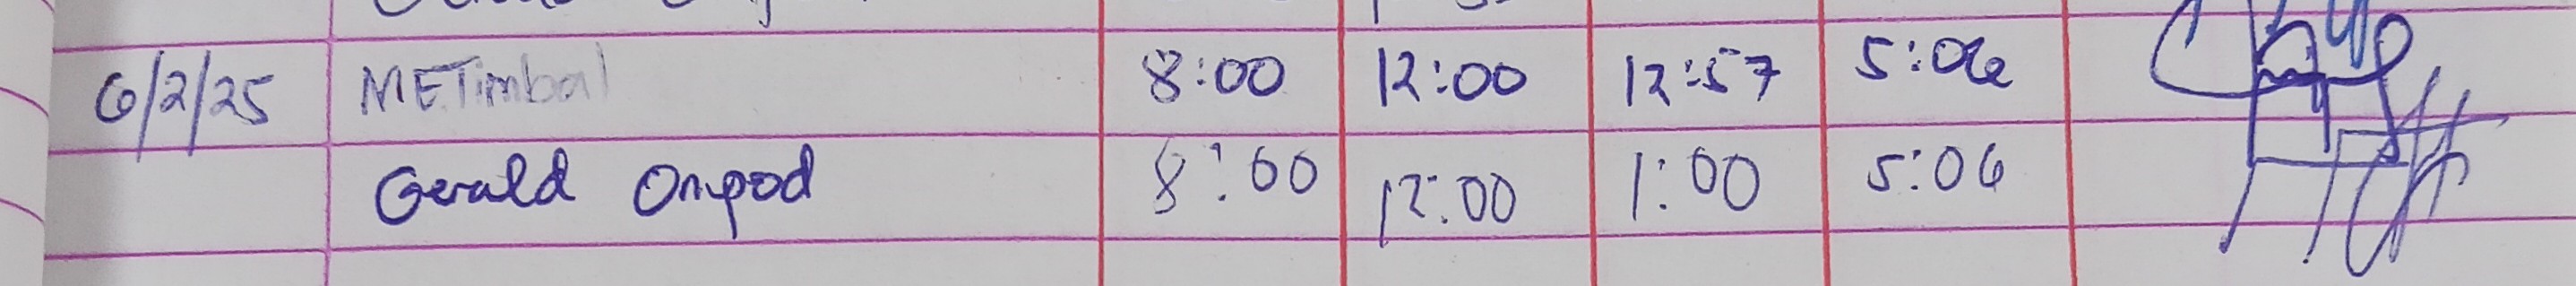 6/2/25 METimbal 8:00 12:00 12:57 5:06
Gerald Ompod 8:00 12:00 1:00 5:06